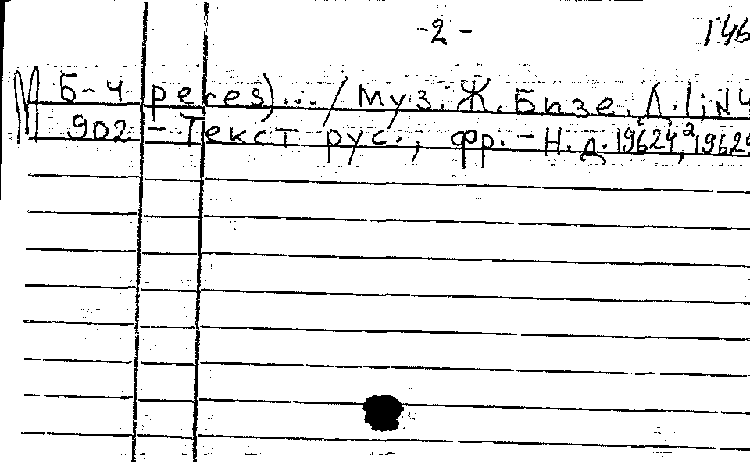 -2- 146
М Б-4 peres)... / Муз. Ж. Бизе. Д. 1; N4
902 - Текст рус., фр. - Н.д. 19624,² 19625